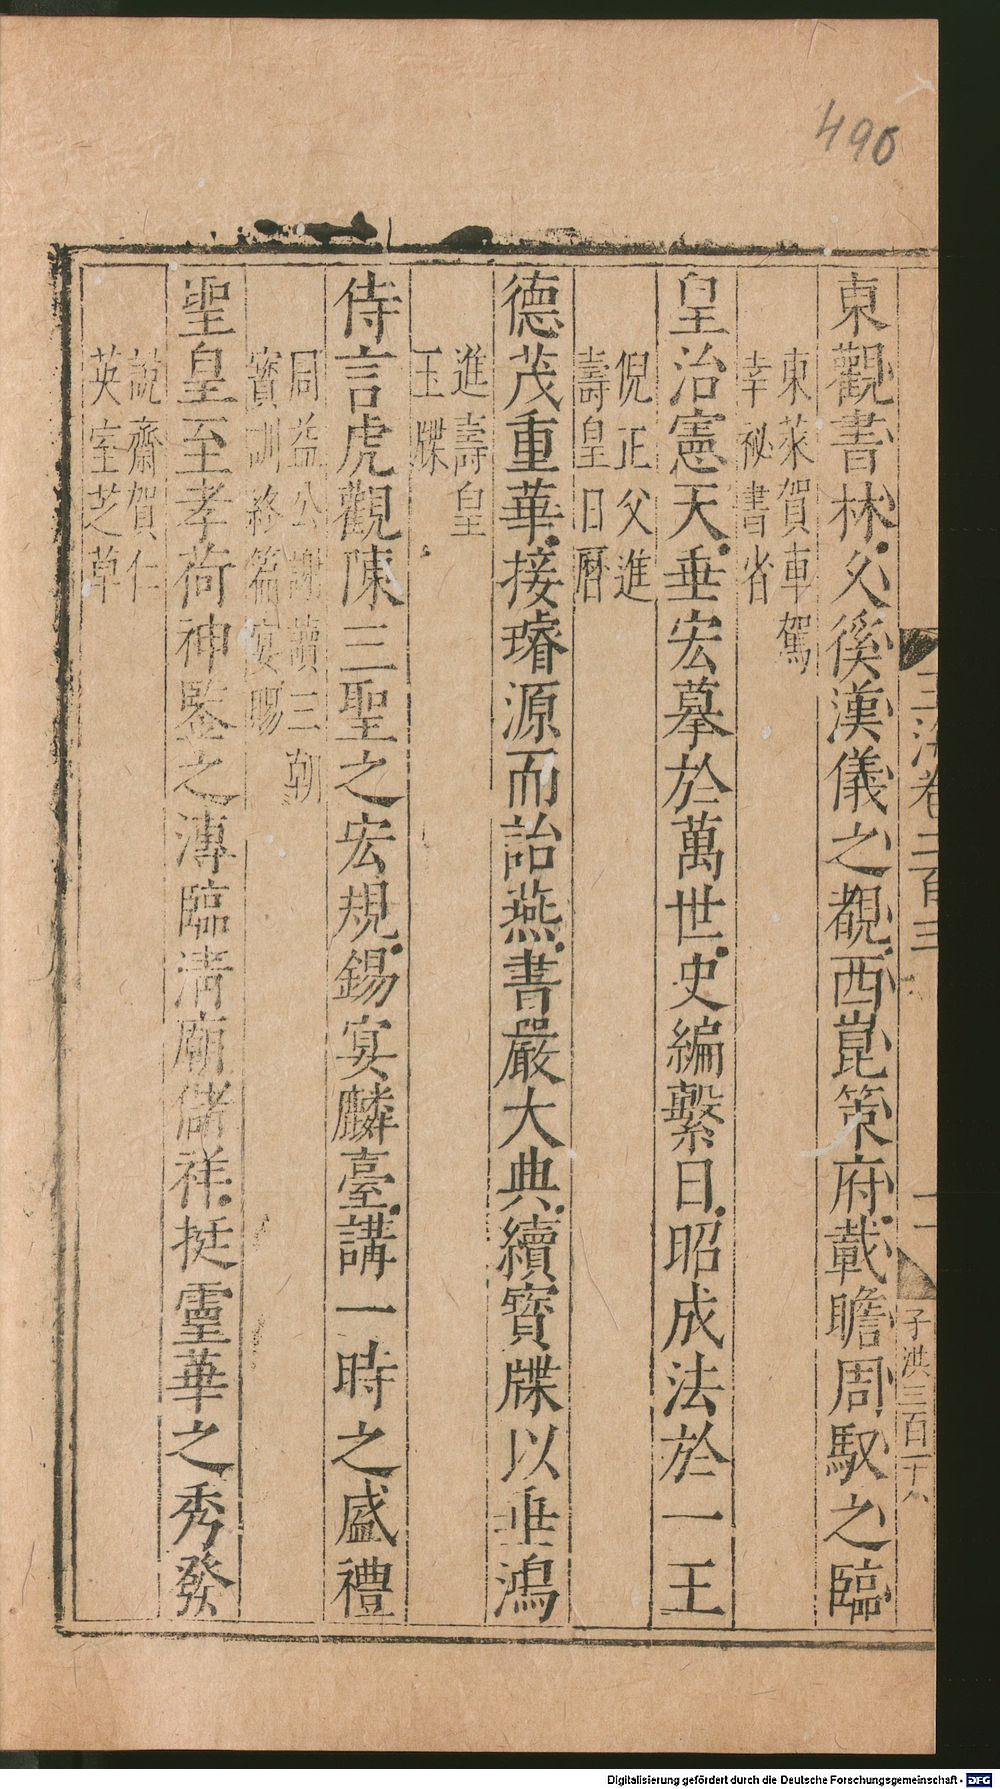 490
玉海卷二百三
子洪三百十八
東觀書林夂徯漢儀之覩西崑策府載瞻周馭之臨
東萊賀車駕
幸祕書省
皇治憲天垂宏摹於萬世史編繫日昭成法於一王
倪正父進
壽皇日曆
德茂重華接璿源而詒燕書嚴大典續寶牒以垂鴻
進壽皇
玉牒
侍言虎觀陳三聖之宏規錫宴麟臺講一時之盛禮
周益公謝讀三朝
寳訓終篇宴賜
聖皇至孝荷神鑒之漙臨清廟儲祥挺靈華之秀發
說齋賀仁
英室芝草
Digitalisierung gefördert durch die Deutsche Forschungsgemeinschaft - DFG